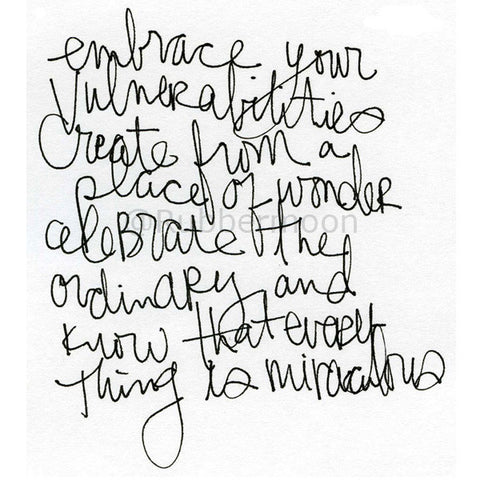 embrace your
vulnerabilities
create from a
place of wonder
©Rubbermoon
celebrate the
ordinary and
know that every
thing is miraculous